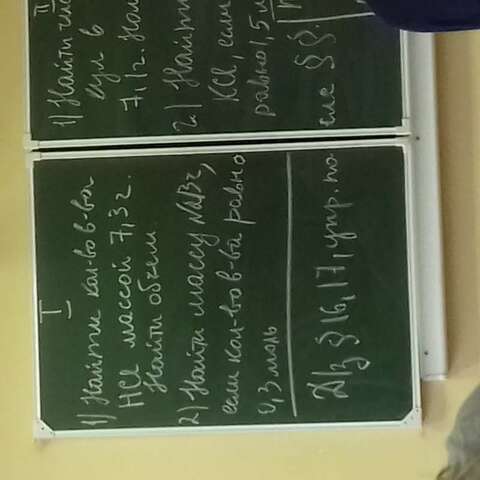 I
1) Найти кол-во в-ва
HCl массой 7,3 г.
Найти объем
2) Найти массу NaBr,
если кол-во в-ва равно
0,3 моль
Д/з § 16, 17, упр. после §§.
II
1) Найти
кул в
7,1 г.
2.) Найти
KCl, если
равно 1,5